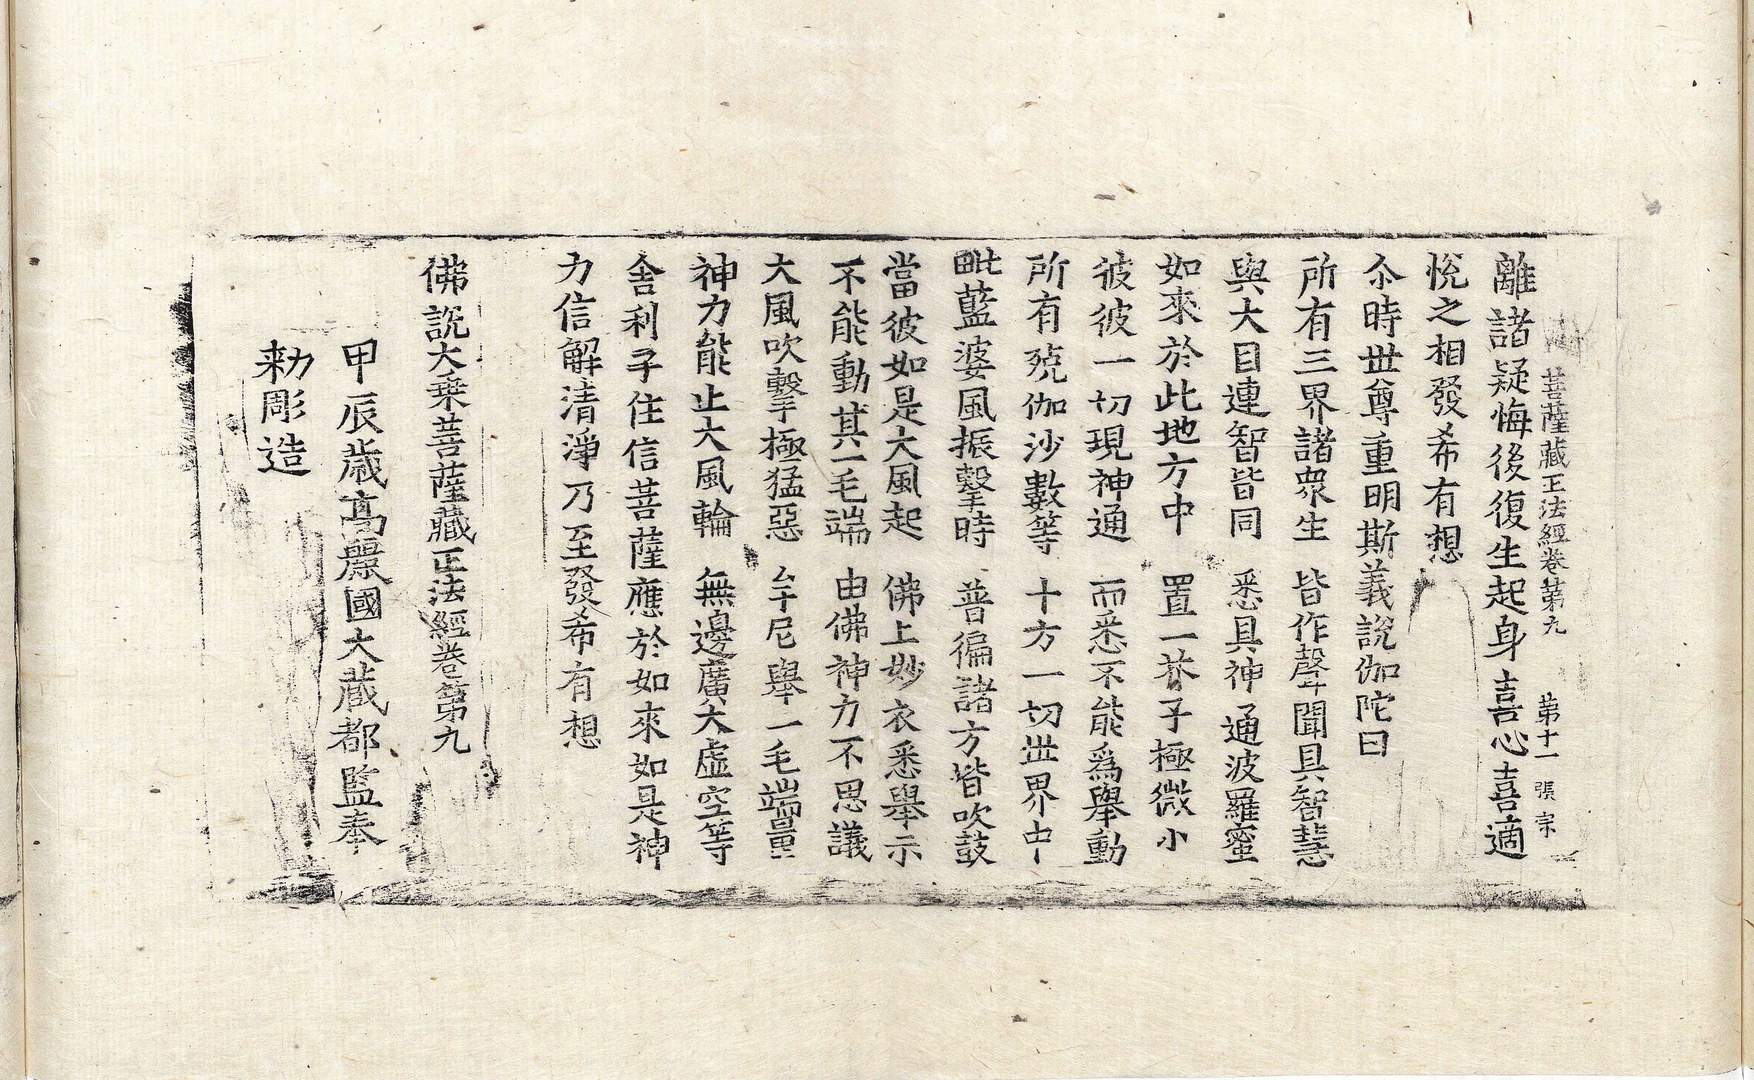 菩薩藏正法經卷第九 第十一張 宗
離諸疑悔後復生起身喜心喜適
悅之相發希有想
尒時世尊重明斯義說伽陀曰
所有三界諸衆生 皆作聲聞具智慧
與大目連智皆同 悉具神通波羅蜜
如來於此地方中 置一芥子極微小
彼彼一切現神通 而悉不能爲舉動
所有殑伽沙數等 十方一切世界中
毗藍婆風振擊時 普徧諸方皆吹鼓
當彼如是大風起 佛上妙衣悉舉示
不能動其一毛端 由佛神力不思議
大風吹擊極猛惡 牟尼舉一毛端量
神力能止大風輪 無邊廣大虛空等
舍利子住信菩薩應於如來如是神
力信解清淨乃至發希有想
佛說大乘菩薩藏正法經卷第九
甲辰歲高麗國大藏都監奉
勅彫造